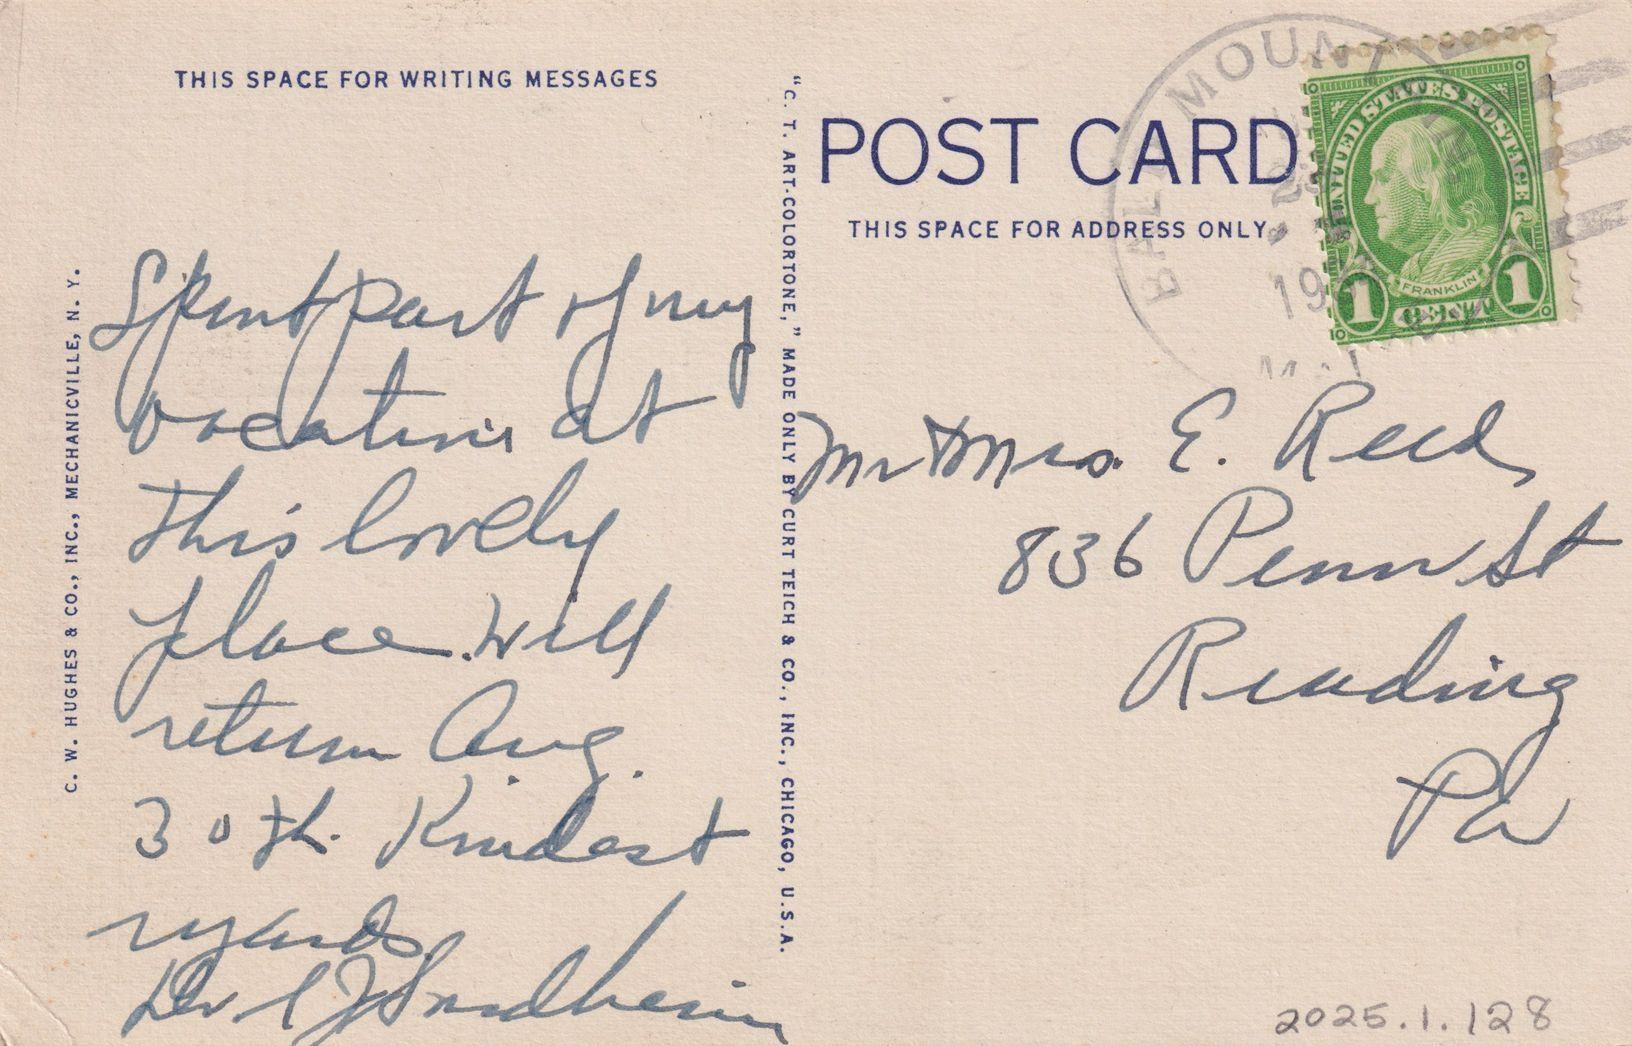 THIS SPACE FOR WRITING MESSAGES
C. W. HUGHES & CO., INC., MECHANICVILLE, N. Y.
Spent part of my
vacation at
this lovely
place. Will
return Aug.
30th. Kindest
regards.
Dr
"C. T. ART-COLORTONE," MADE ONLY BY CURT TEICH & CO., INC., CHICAGO, U.S.A.
POST CARD
THIS SPACE FOR ADDRESS ONLY
MOUNT
UNITED STATES POSTAGE
FRANKLIN
1 CENT 1
Mr & Mrs. E. Reed,
836 Penn St
Reading
Pa
2025.1.128